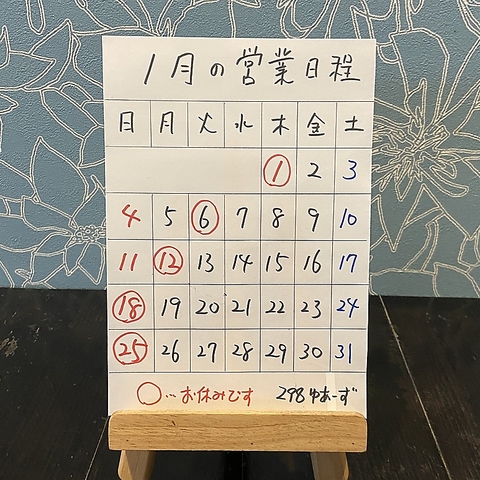 1月の営業日程
日 月 火 水 木 金 土
1 2 3
4 5 6 7 8 9 10
11 12 13 14 15 16 17
18 19 20 21 22 23 24
25 26 27 28 29 30 31
○…お休みです 298ゆあーず